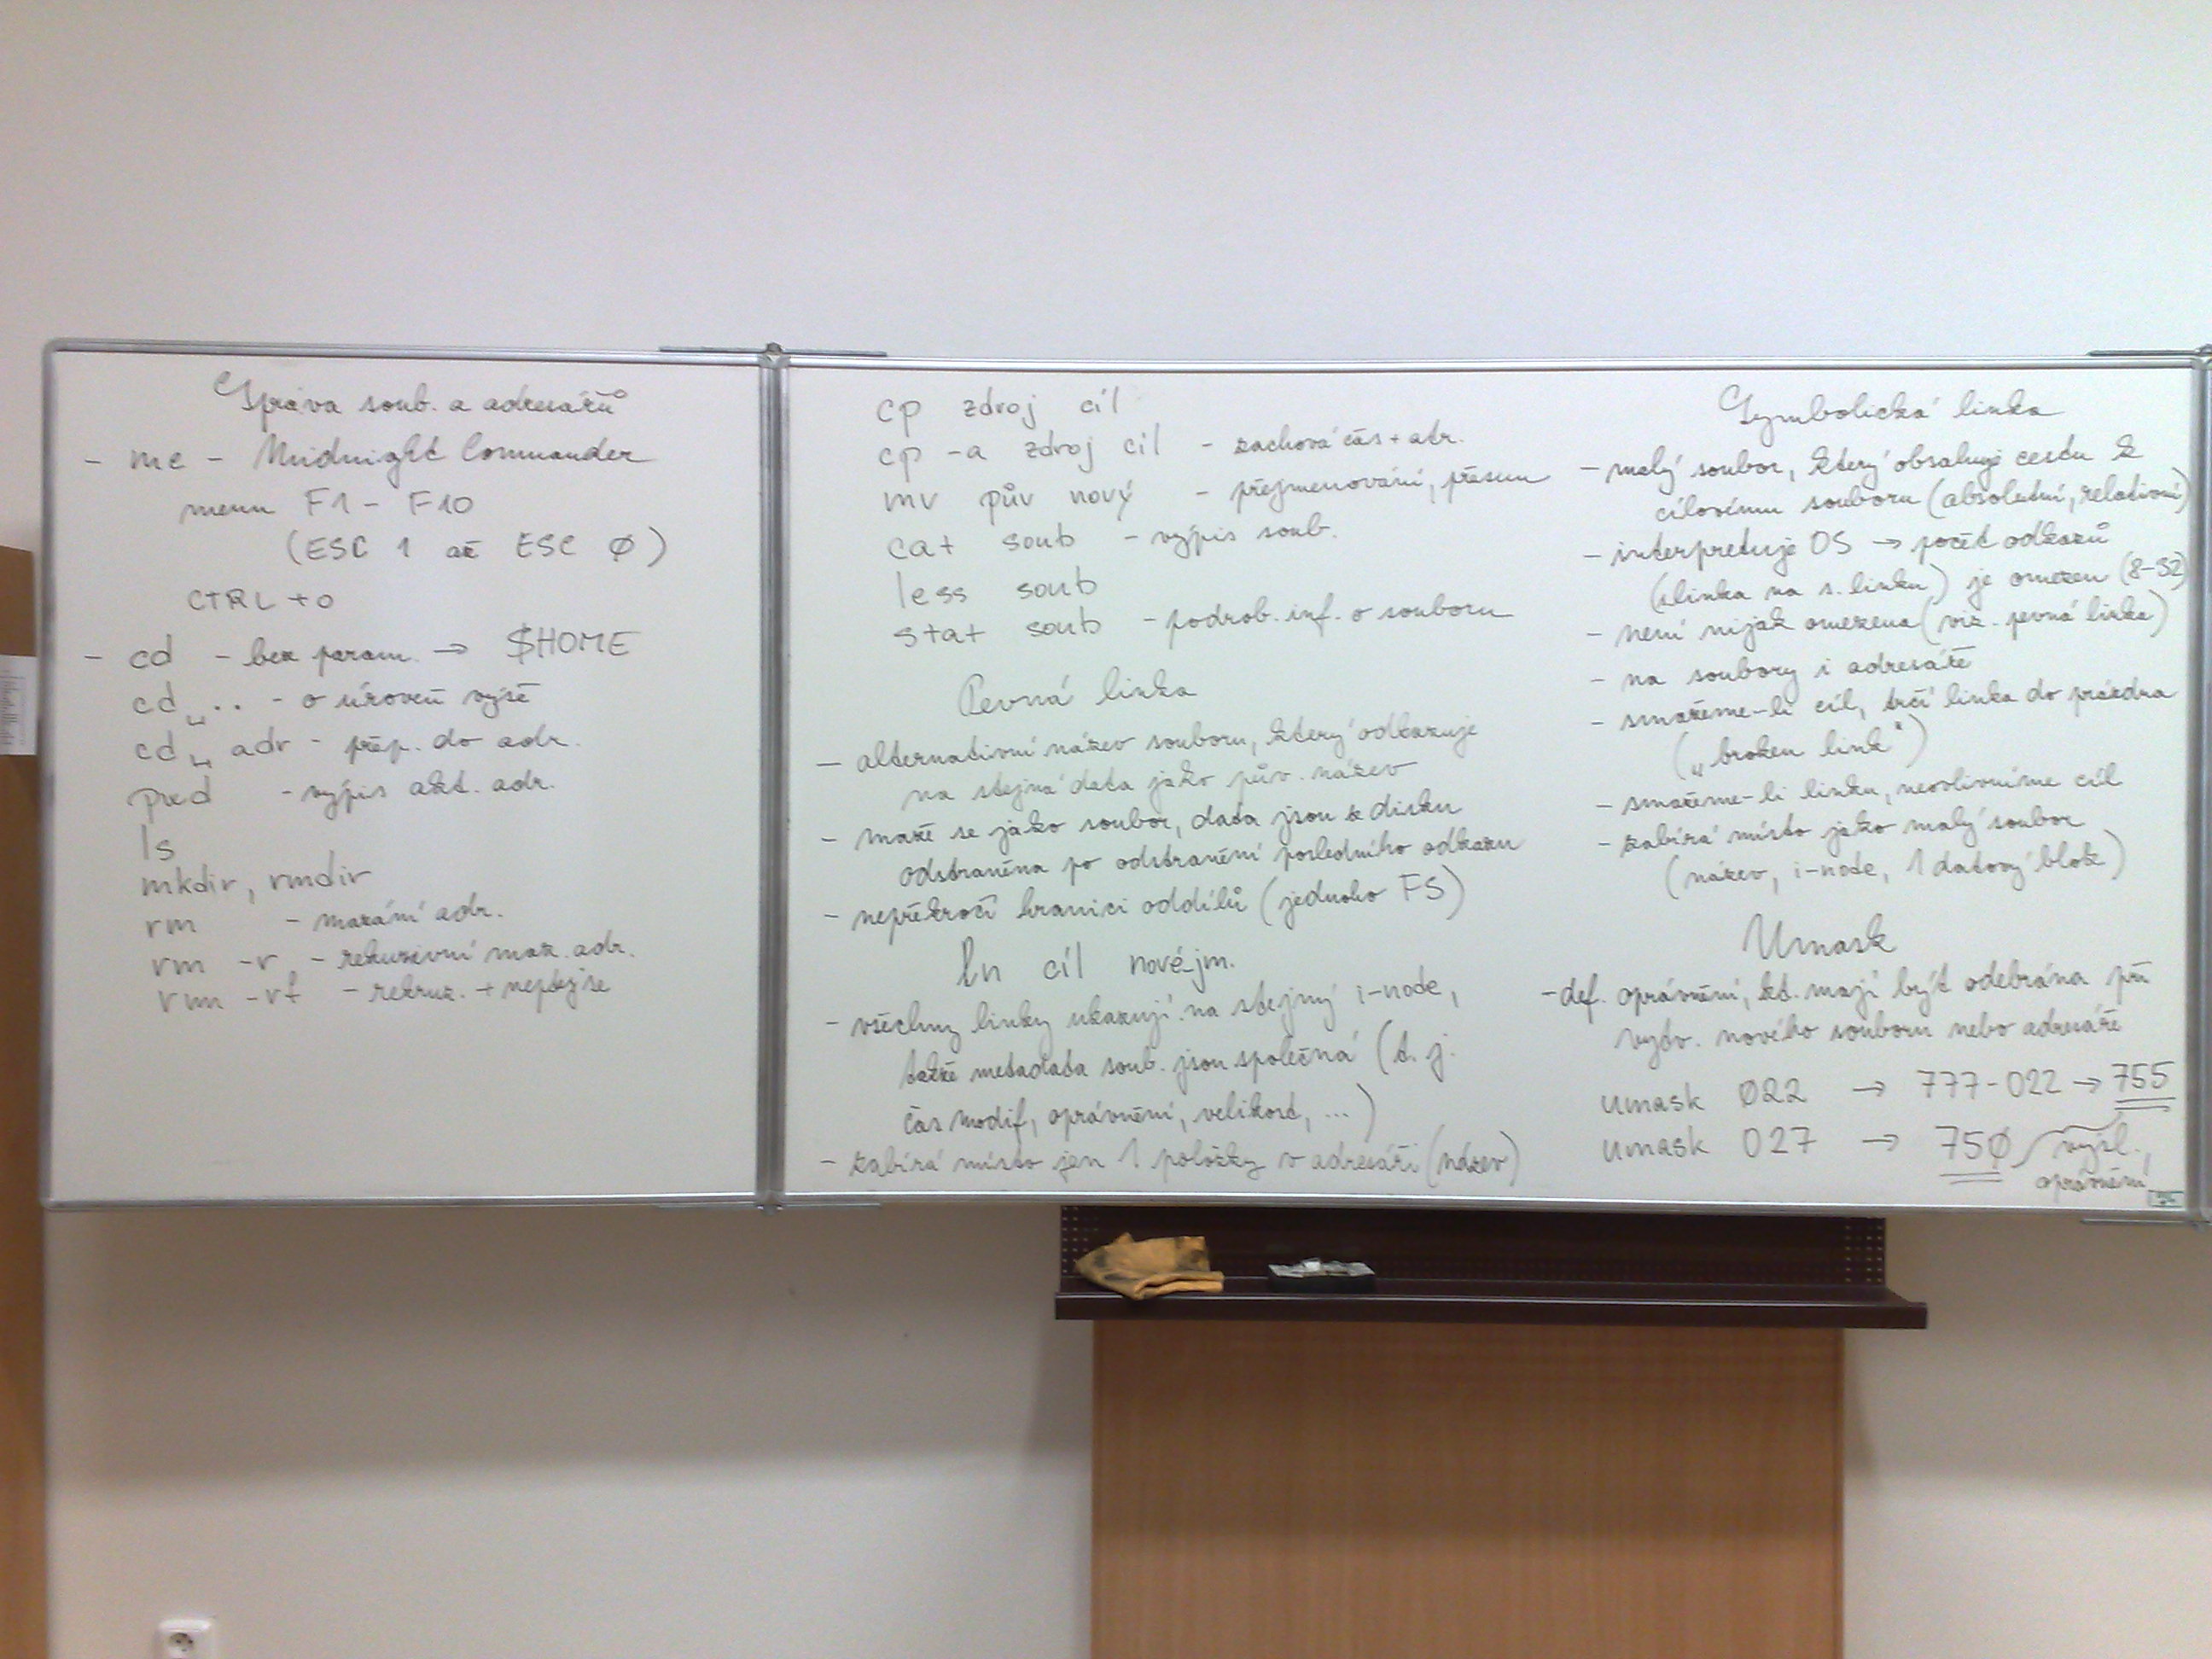 Správa soub. a adresářů
- mc - Midnight Commander
menu F1 - F10
(ESC 1 až ESC 0)
CTRL + o
- cd - bez param. → $HOME
cd␣.. - o úroveň výše
cd␣adr - přep. do adr.
pwd - výpis akt. adr.
ls
mkdir, rmdir
rm - mazání adr.
rm -r - rekurzivní maz. adr.
rm -rf - rekruz. + neptej se
cp zdroj cíl
cp -a zdroj cíl - zachová čas + atr.
mv pův nový - přejmenování, přesun
cat soub - výpis soub.
less soub
stat soub - podrob. inf. o souboru
Pevná linka
- alternativní název souboru, který odkazuje
na stejná data jako pův. název
- maže se jako soubor, data jsou z disku
odstraněna po odstranění posledního odkazu
- nepřekročí hranici oddílů (jednoho FS)
ln cíl novéjm.
- všechny linky ukazují na stejný i-node,
takže metadata soub. jsou společná (t. j.
čas modif, oprávnění, velikost, ...)
- zabírá místo jen 1 položky v adresáři (název)
Symbolická linka
- malý soubor, který obsahuje cestu k
cílovému souboru (absolutní, relativní)
- interpretuje OS → počet odkazů
(slinka na s. linku) je omezen (8-32)
- není nijak omezena (viz. pevná linka)
- na soubory i adresáře
- smažeme-li cíl, trčí linka do prázdna
(„broken link“)
- smažeme-li linku, neovlivníme cíl
- zabírá místo jako malý soubor
(název, i-node, 1 datový blok)
Umask
- def. oprávnění, kt. mají být odebrána při
vytv. nového souboru nebo adresáře
umask 022 → 777-022 → 755
umask 027 → 750 výsl.
oprávnění